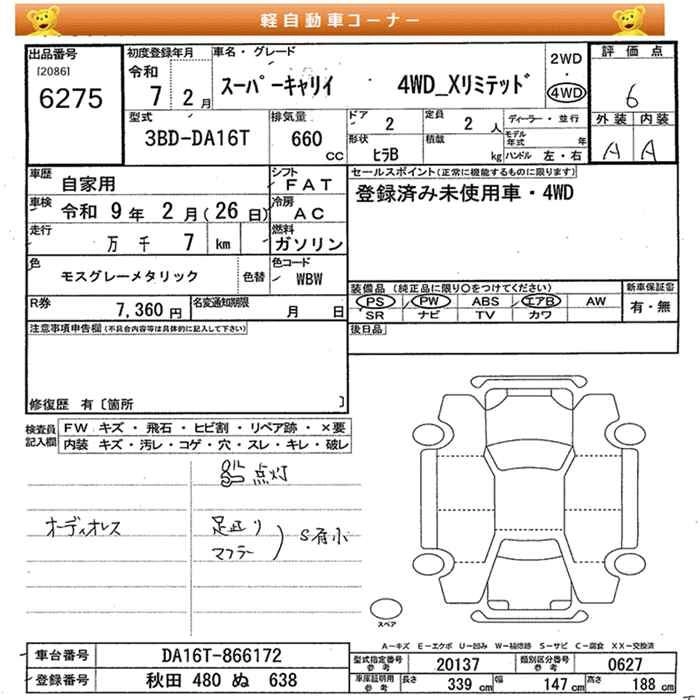 軽自動車コーナー
出品番号
[2086]
6275
初度登録年月
令和
7 2月
車名・グレード
スーパーキャリイ 4WD_Xリミテッド
2WD
・
4WD
評価点
6
外装 内装
A A
型式
3BD-DA16T
排気量
660
CC
ドア
2
形状
ヒラB
定員
2 人
積載
kg
ディーラー・並行
モデル年式 年
ハンドル 左・右
車歴
自家用
シフト
FAT
車検
令和 9年 2月(26日)
冷房
AC
走行
万 千 7 km
燃料
ガソリン
色
モスグレーメタリック
色替
色コード
WBW
R券
7,360 円
名変通知期限
月 日
セールスポイント(正常に機能するものに限ります)
登録済み未使用車・4WD
装備品 (純正品に限り○をつけてください)
PS PW ABS エアB AW
SR ナビ TV カワ
新車保証書
有・無
後日品
注意事項申告欄(不具合内容等は具体的に記入して下さい)
修復歴 有〔箇所 〕
検査員記入欄
FW キズ・飛石・ヒビ割・リペア跡・×要
内装 キズ・汚レ・コゲ・穴・スレ・キレ・破レ
点灯
オーディオレス
足廻り
マフラー
S有小
スペア
A-キズ E-エクボ U-凹み W-補修跡 S-サビ C-腐食 XX-交換済
車台番号
DA16T-866172
登録番号
秋田 480 ぬ 638
型式指定番号
参考
20137
類別区分番号
参考
0627
車庫証明用
参考
長さ
339 cm
幅
147 cm
高さ
188 cm